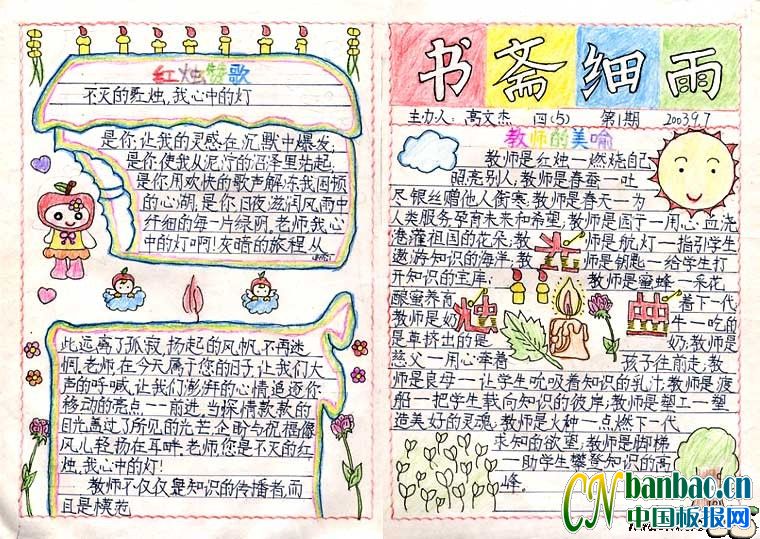 红烛赞歌
不灭的红烛,我心中的灯
是你,让我的灵感在沉默中爆发;
是你使我从泥泞的沼泽里站起;
是你用欢快的歌声解冻我困顿
的心湖,是你日夜滋润风雨中
纤细的每一片绿阴,老师,我心
中的灯啊!灰暗的旅程,从
此远离了孤寂,扬起的风帆,不再迷
惘,老师,在今天属于您的日子,让我们大
声的呼喊,让我们澎湃的心情追逐你
移动的亮点,一一前进,当深情款款的
目光,高过了所见的光芒,企盼与祝福像
风儿轻扬在耳畔,老师,您是不灭的红
烛,我心中的灯!
教师不仅仅是知识的传播者,而
且是模范
书斋细雨
主办人:高文杰 四(5) 第1期 2003.9.7
教师的美喻
教师是红烛一燃烧自己
照亮别人;教师是春蚕一吐
尽银丝赠他人御寒;教师是春天一为
人类服务,孕育未来和希望;教师是园丁一用心血浇
灌祖国的花朵;教师是航灯一指引学生
遨游知识的海洋;教师是钥匙一给学生打
开知识的宝库;教师是蜜蜂一采花
酿蜜养育着下代
教师是奶牛一吃的
是草挤出的是奶;教师是
慈父一用心牵着孩子往前走;教
师是良母一让学生吮吸着知识的乳汁;教师是渡
船一把学生载向知识的彼岸;教师是塑工一塑
造美好的灵魂;教师是火种一点燃下一代
求知的欲望;教师是脚梯
一助学生攀登知识的高
峰。
CNbanbao.cn
中国板报网